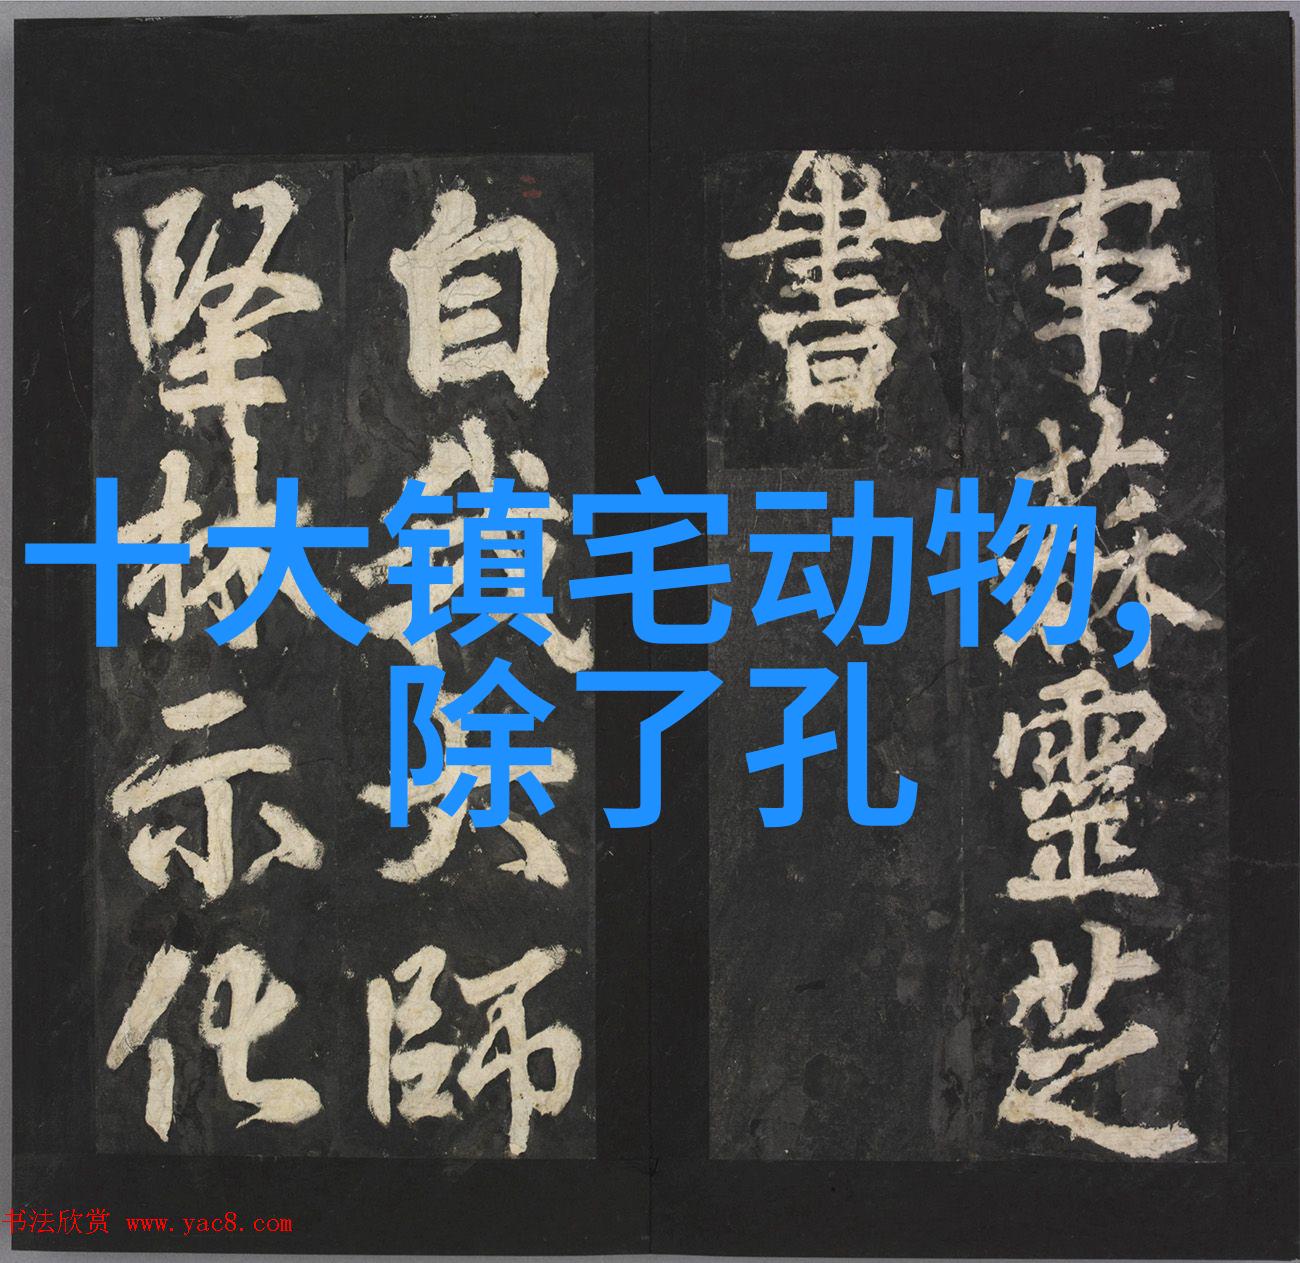 事蘇靈芝
書
自我大師
堅林示化
十大镇宅动物,
除了孔
书法欣赏 www.yac8.com